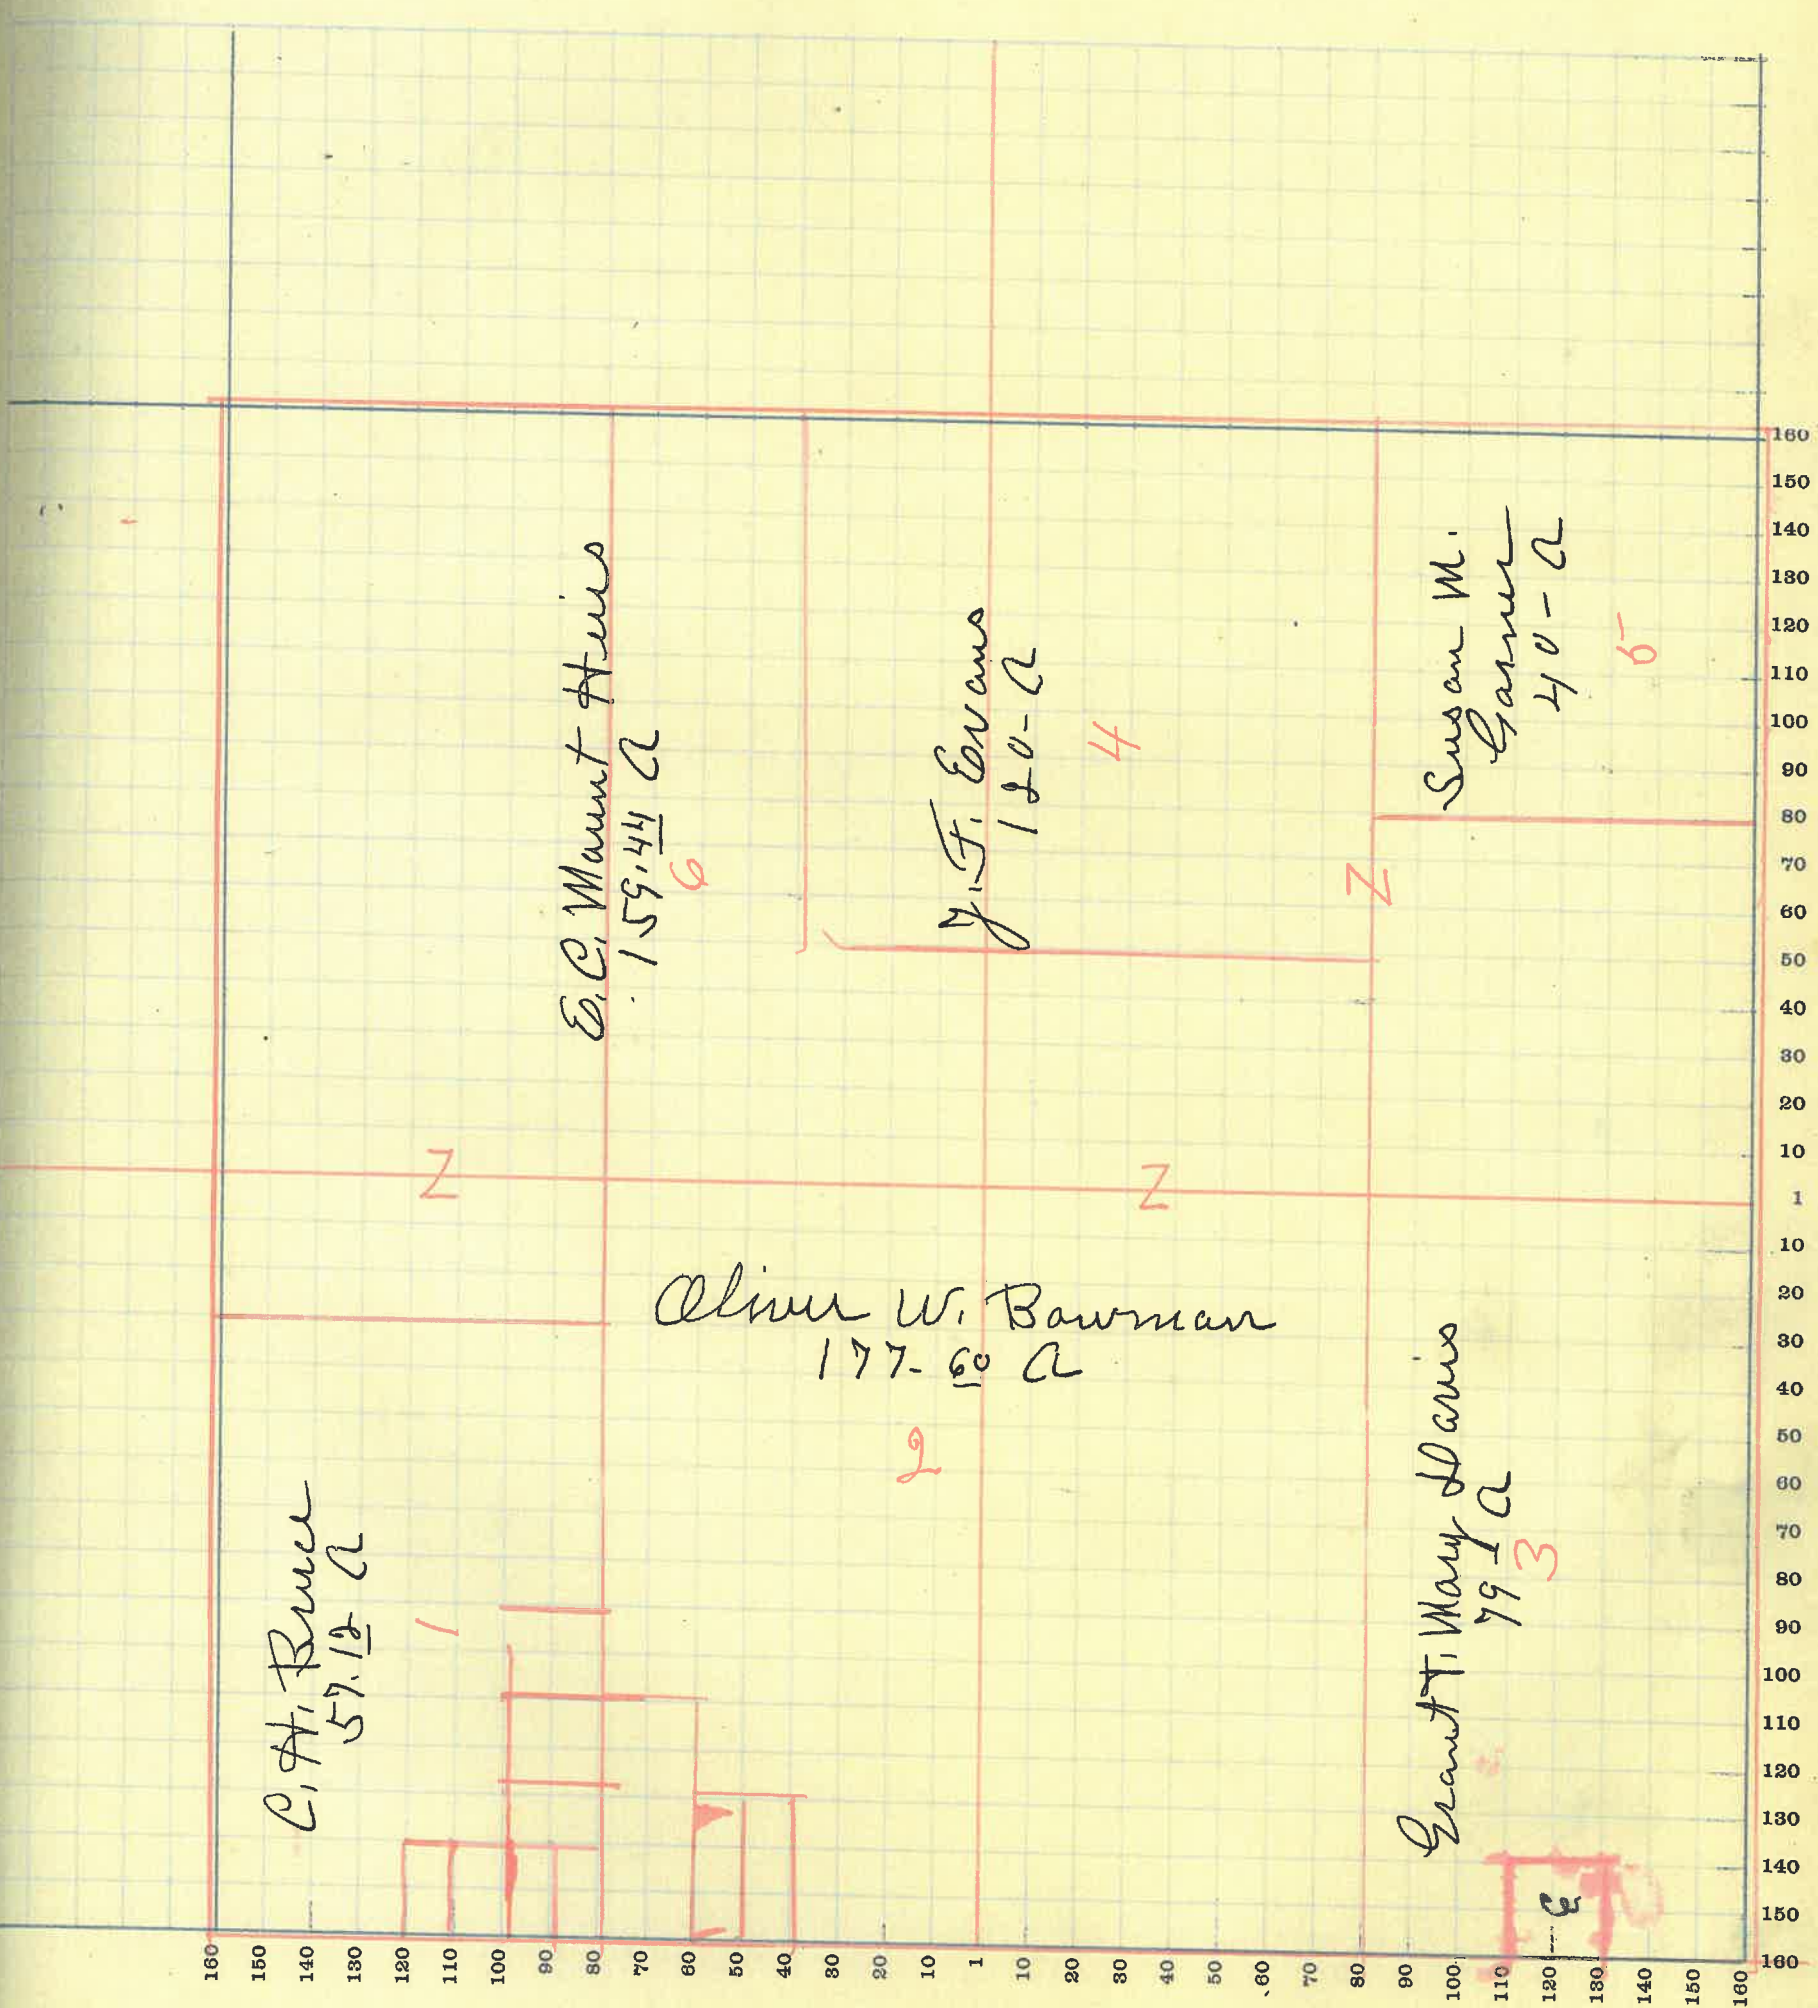 E.C. Maunt Heirs
159.44 A
6
J.F. Evans
120-A
4
Susan M.
Garner
40-A
5
Z
Z
Z
Oliver W. Bowman
177-60 A
2
C.H. Bruce
57.12 A
1
Grant T. Mary Davis
79 A
3
3
160
150
140
130
120
110
100
90
80
70
60
50
40
30
20
10
1
10
20
30
40
50
60
70
80
90
100
110
120
130
140
150
160
160
150
140
130
120
110
100
90
80
70
60
50
40
30
20
10
1
10
20
30
40
50
60
70
80
90
100
110
120
130
140
150
160